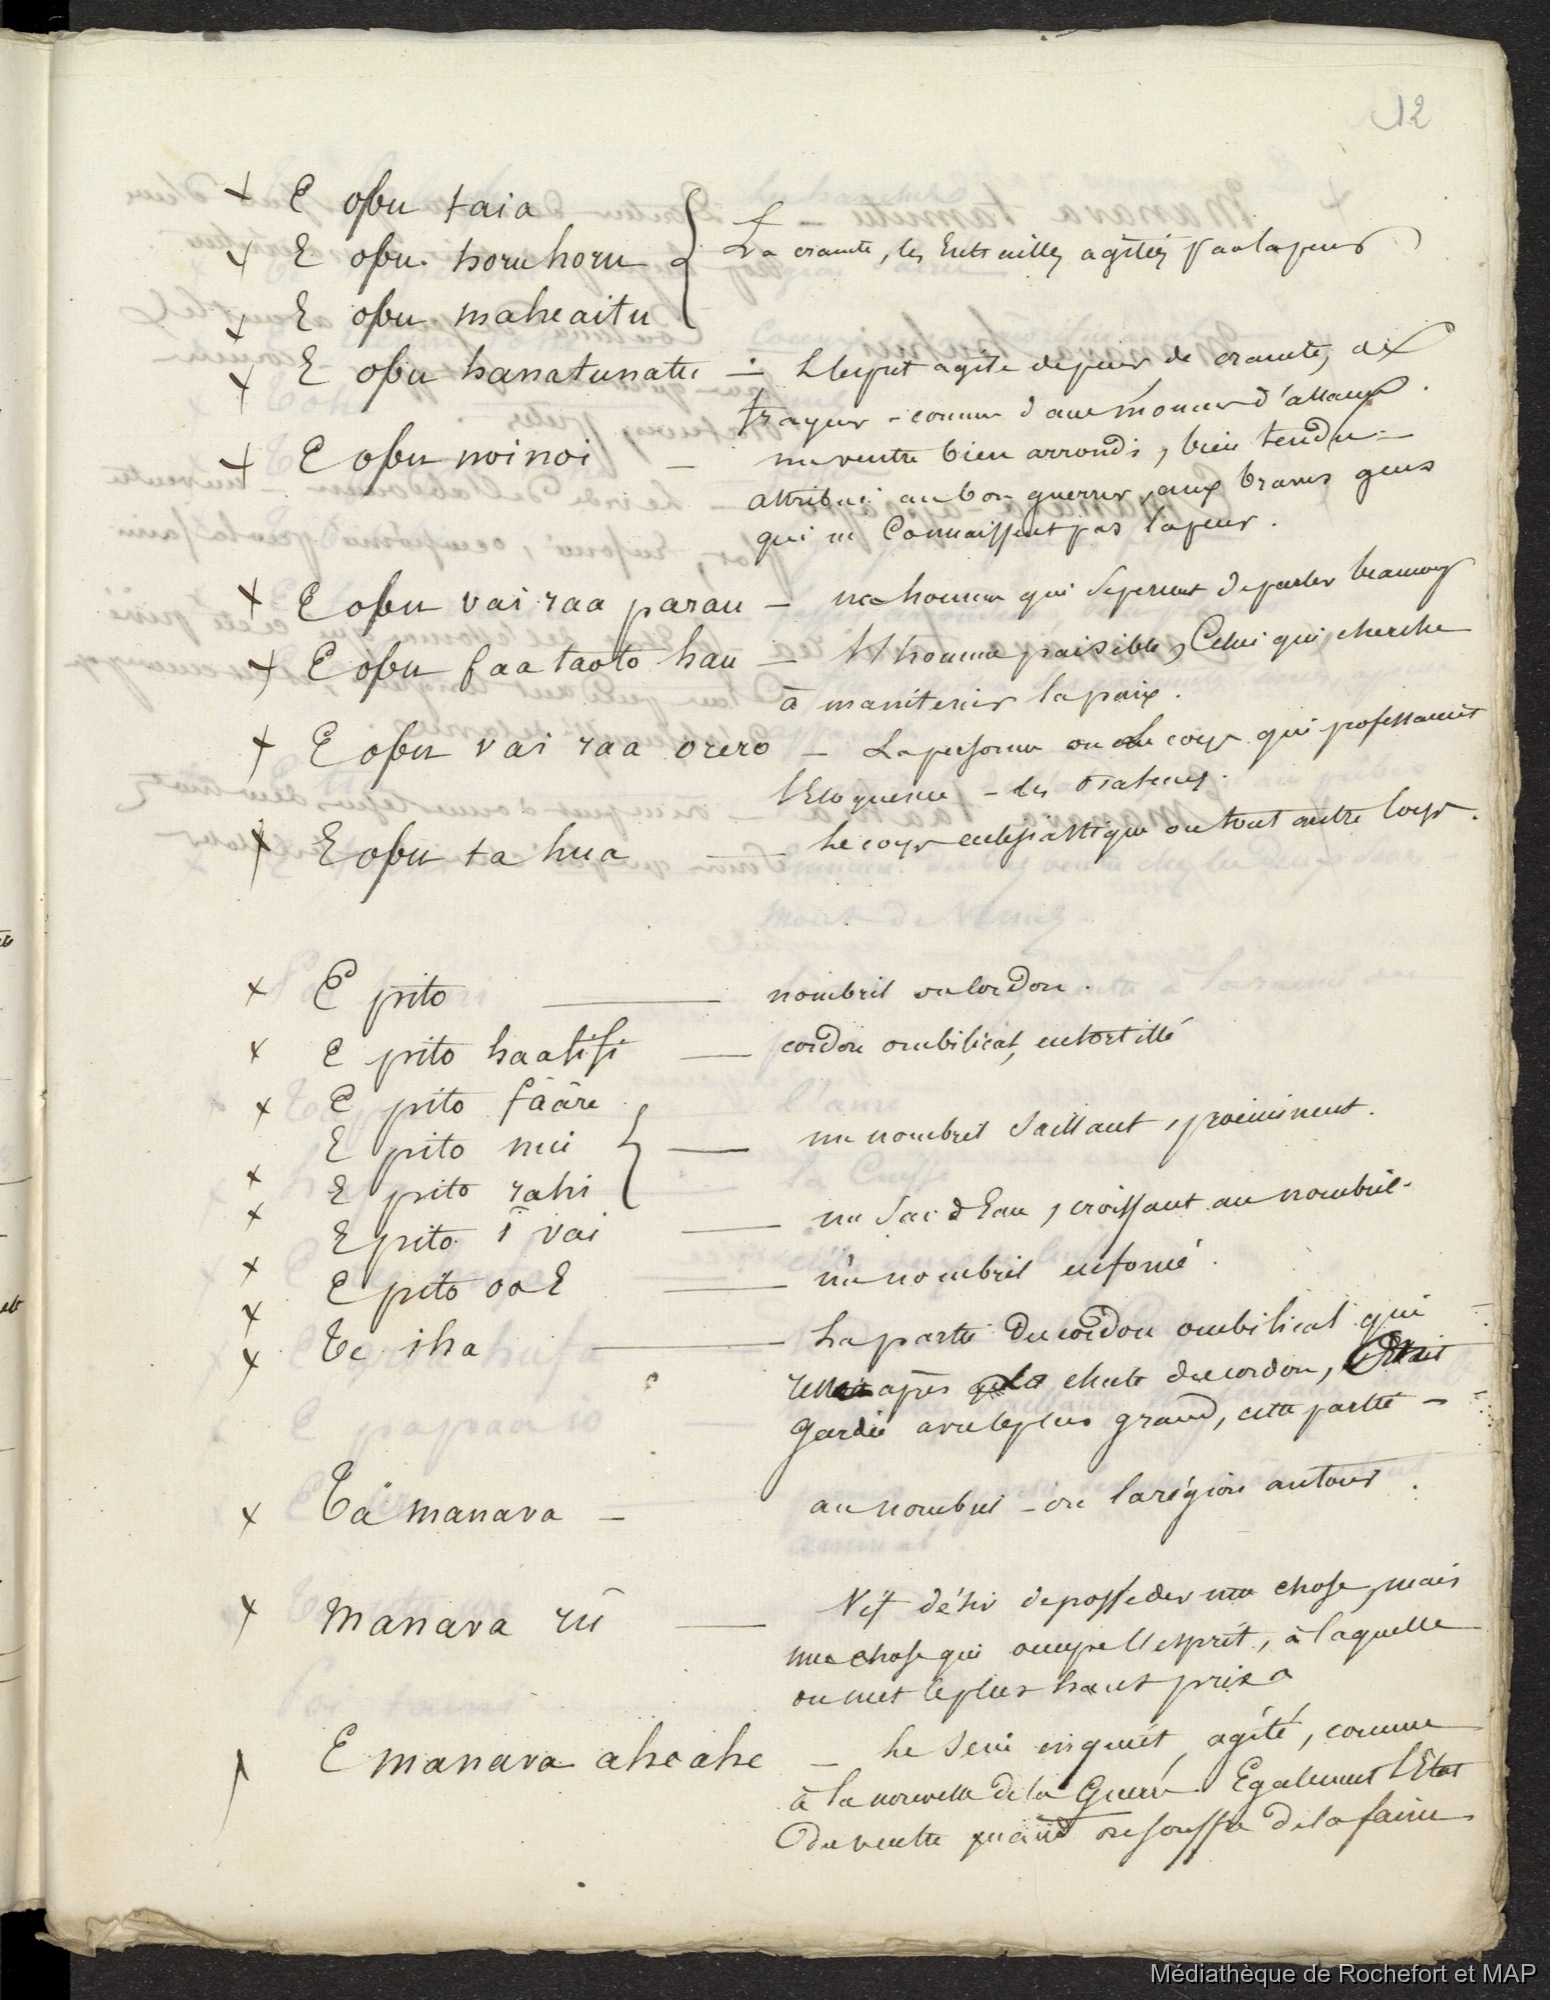 12
E obu taia
E obu horuhoru { La crainte, les Entrailles agitées par la peur
E obu maheaitu
E obu hanatunatu — L'esprit agité de peur de crainte, de
frayeur - comme d'une d'assaux.
E obu noinoi — un ventre bien arrondi, bien tendu —
attribué au bon guerrier, aux braves gens
qui ne Connaissent pas la peur.
E obu vai raa parau — un homme qui se permet de parler beaucoup
E obu faa taoto hau — l'homme paisible, Celui qui cherche
à maintenir la paix.
E obu vai raa orero — La personne ou le corps qui professaient
l'Eloquence - les orateurs.
E obu tahua — Le corps eclesiastique ou tout autre corps.
E pito — nombril ou cordon.
E pito haalifi — cordon ombilical, entortillé
E pito fââre
E pito nui } — un nombril saillant, proéminent.
E pito rahi
E pito î vai — un sac d'Eau, croissant au nombril.
E pito oo E — un nombril enfoncé.
Te iha — La partie du cordon ombilical qui
reste après la chute du cordon,
gardée avec le plus grand, cette partie —
Tâ manava — au nombril - ou la région autour.
Manava rû — Vif désir de posséder une chose, mais
une chose qui occupe l'esprit, à laquelle
on met le plus haut prix
E manava aheahe — Le sein inquiét, agité, comme
à la nouvelle de la Guerre. Egalement l'Etat
du ventre quand on souffre de la faim
Médiathèque de Rochefort et MAP